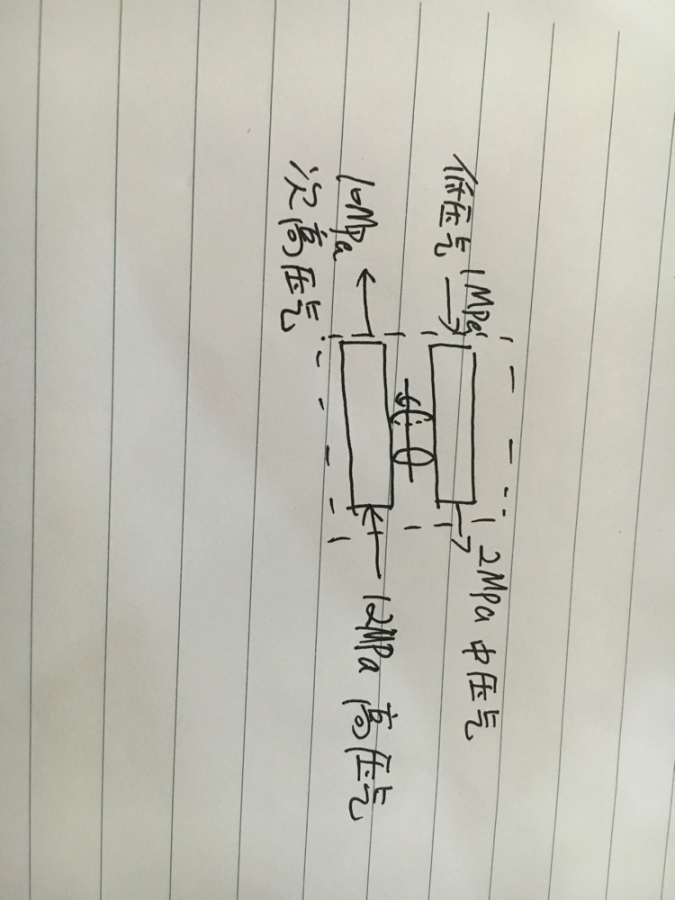 低压气 1MPa
2MPa 中压气
10MPa
次高压气
12MPa 高压气